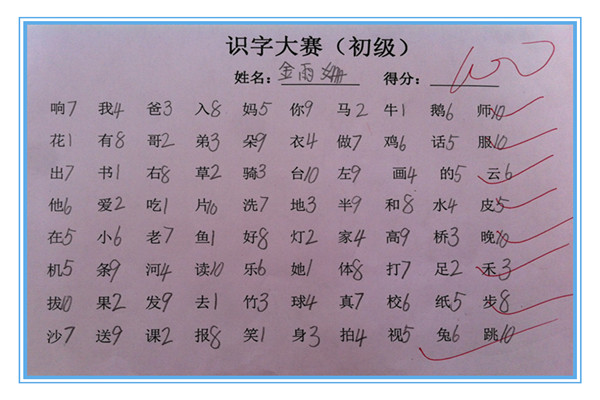 识字大赛（初级）
姓名：金雨姗 得分：100
响7 我4 爸3 入8 妈5 你9 马2 牛1 鹅6 师10
花1 有8 哥2 弟3 朵9 衣4 做7 鸡6 话5 服10
出7 书1 右8 草2 骑3 台10 左9 画4 的5 云6
他6 爱2 吃1 片10 洗7 地3 半9 和8 水4 皮5
在5 小6 老7 鱼1 好8 灯2 家4 高9 桥3 晚10
机5 条9 河4 读10 乐6 她1 体8 打7 足2 禾3
拔10 果2 发9 去1 竹3 球4 真7 校6 纸5 步8
沙7 送9 课2 报8 笑1 身3 拍4 视5 兔6 跳10